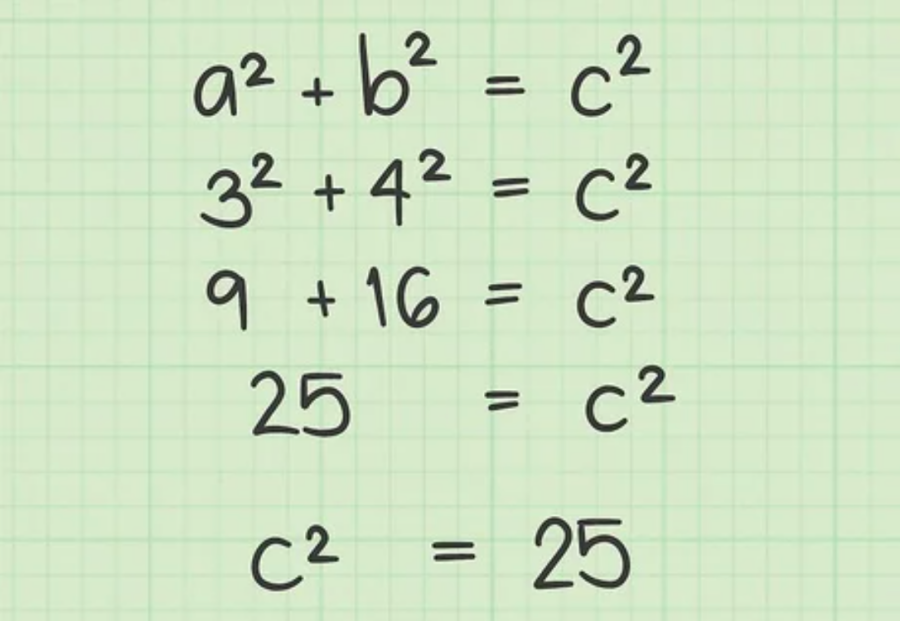 a² + b² = c²
3² + 4² = c²
9 + 16 = c²
25 = c²
c² = 25